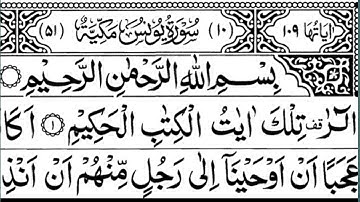 اٰیَاتُهَا ١٠٩ (١٠) سُوْرَةُ یُوْنُسَ مَكِّیَّةٌ (٥١)
بِسْمِ اللّٰهِ الرَّحْمٰنِ الرَّحِیْمِ
الٓرٰ قف تِلْكَ اٰیٰتُ الْكِتٰبِ الْحَكِیْمِ ١ اَكَا
عَجَبًا اَنْ اَوْحَیْنَاۤ اِلٰی رَجُلٍ مِّنْهُمْ اَنْ اَنْذِ